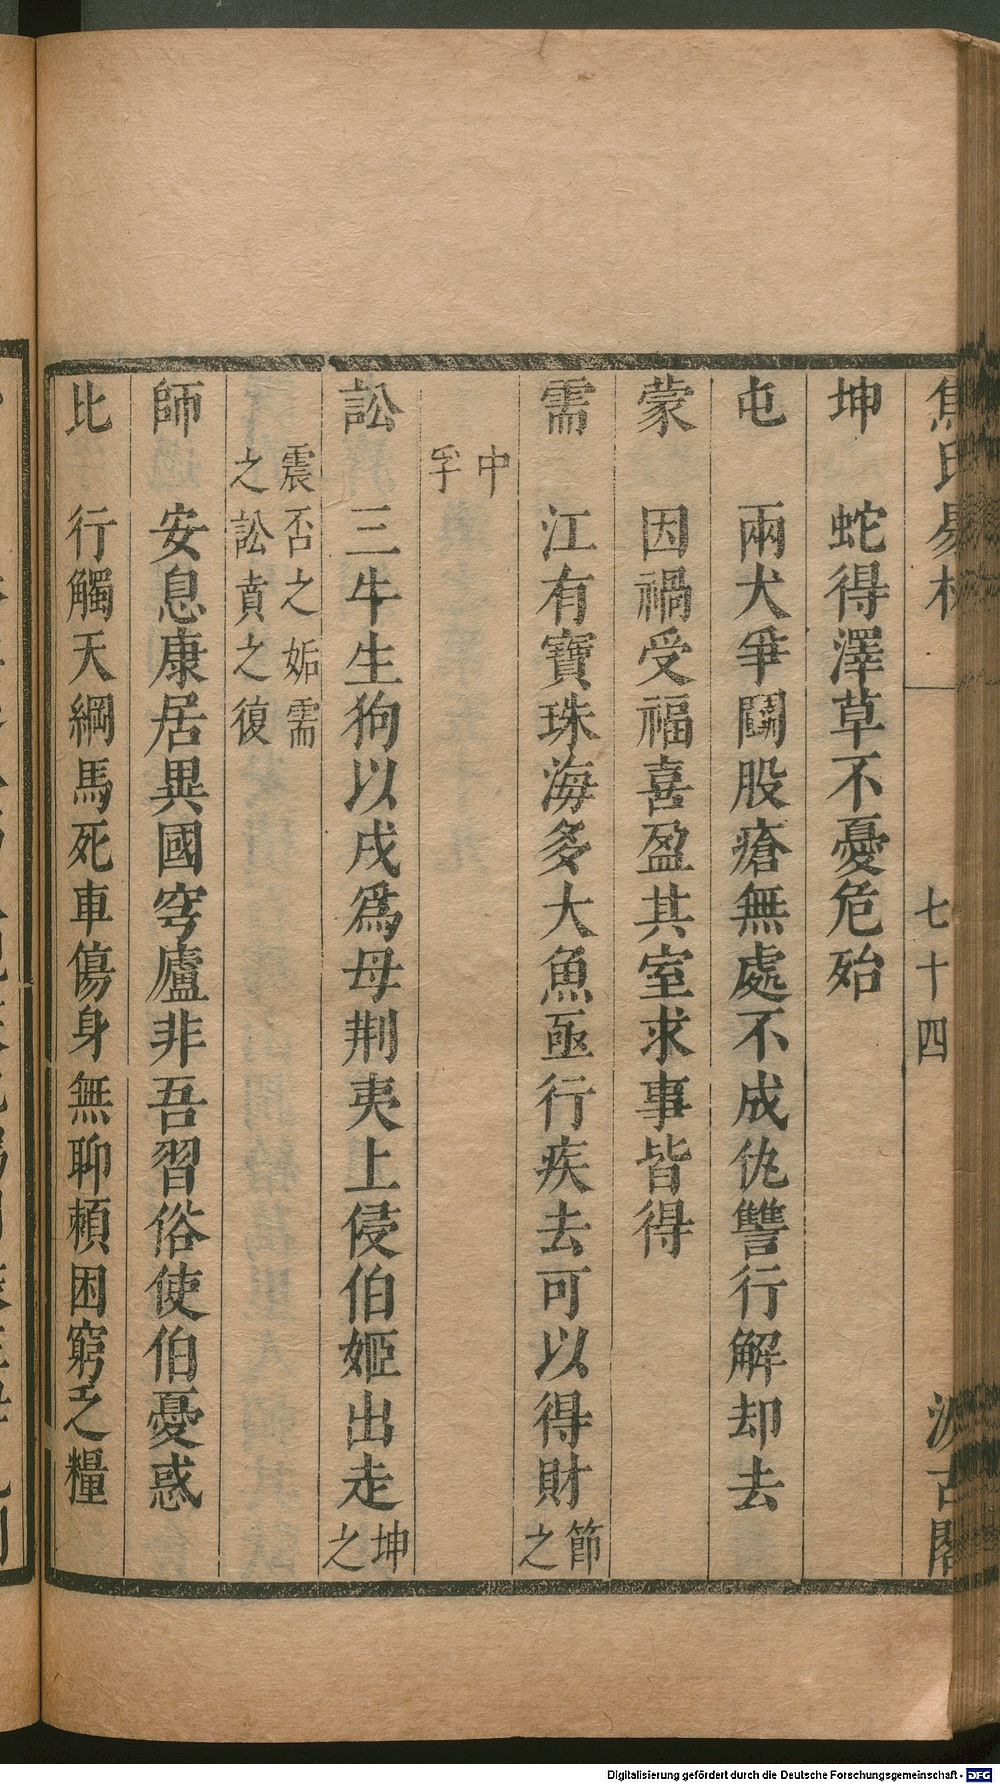 焦氏易林
七十四
汲古閣
坤 蛇得澤草不憂危殆
屯 兩犬爭鬬股瘡無處不成仇讐行解却去
蒙 因禍受福喜盈其室求事皆得
需 江有寶珠海多大魚亟行疾去可以得財節之
中孚
訟 三牛生狗以戌爲母荆夷上侵伯姬出走坤之
震否之姤需之訟賁之復
師 安息康居異國穹廬非吾習俗使伯憂惑
比 行觸天綱馬死車傷身無聊頼困窮乏糧
Digitalisierung gefördert durch die Deutsche Forschungsgemeinschaft - DFG